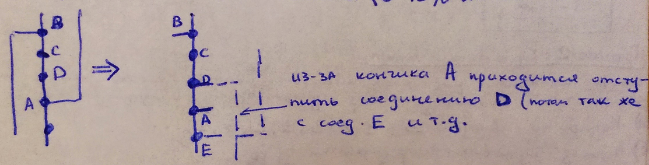 B
C
D
A
⇒
B
C
D
A
E
из-за кончика A приходится отсту-
пить соединению D (потом так же
с соед. E и т.д.